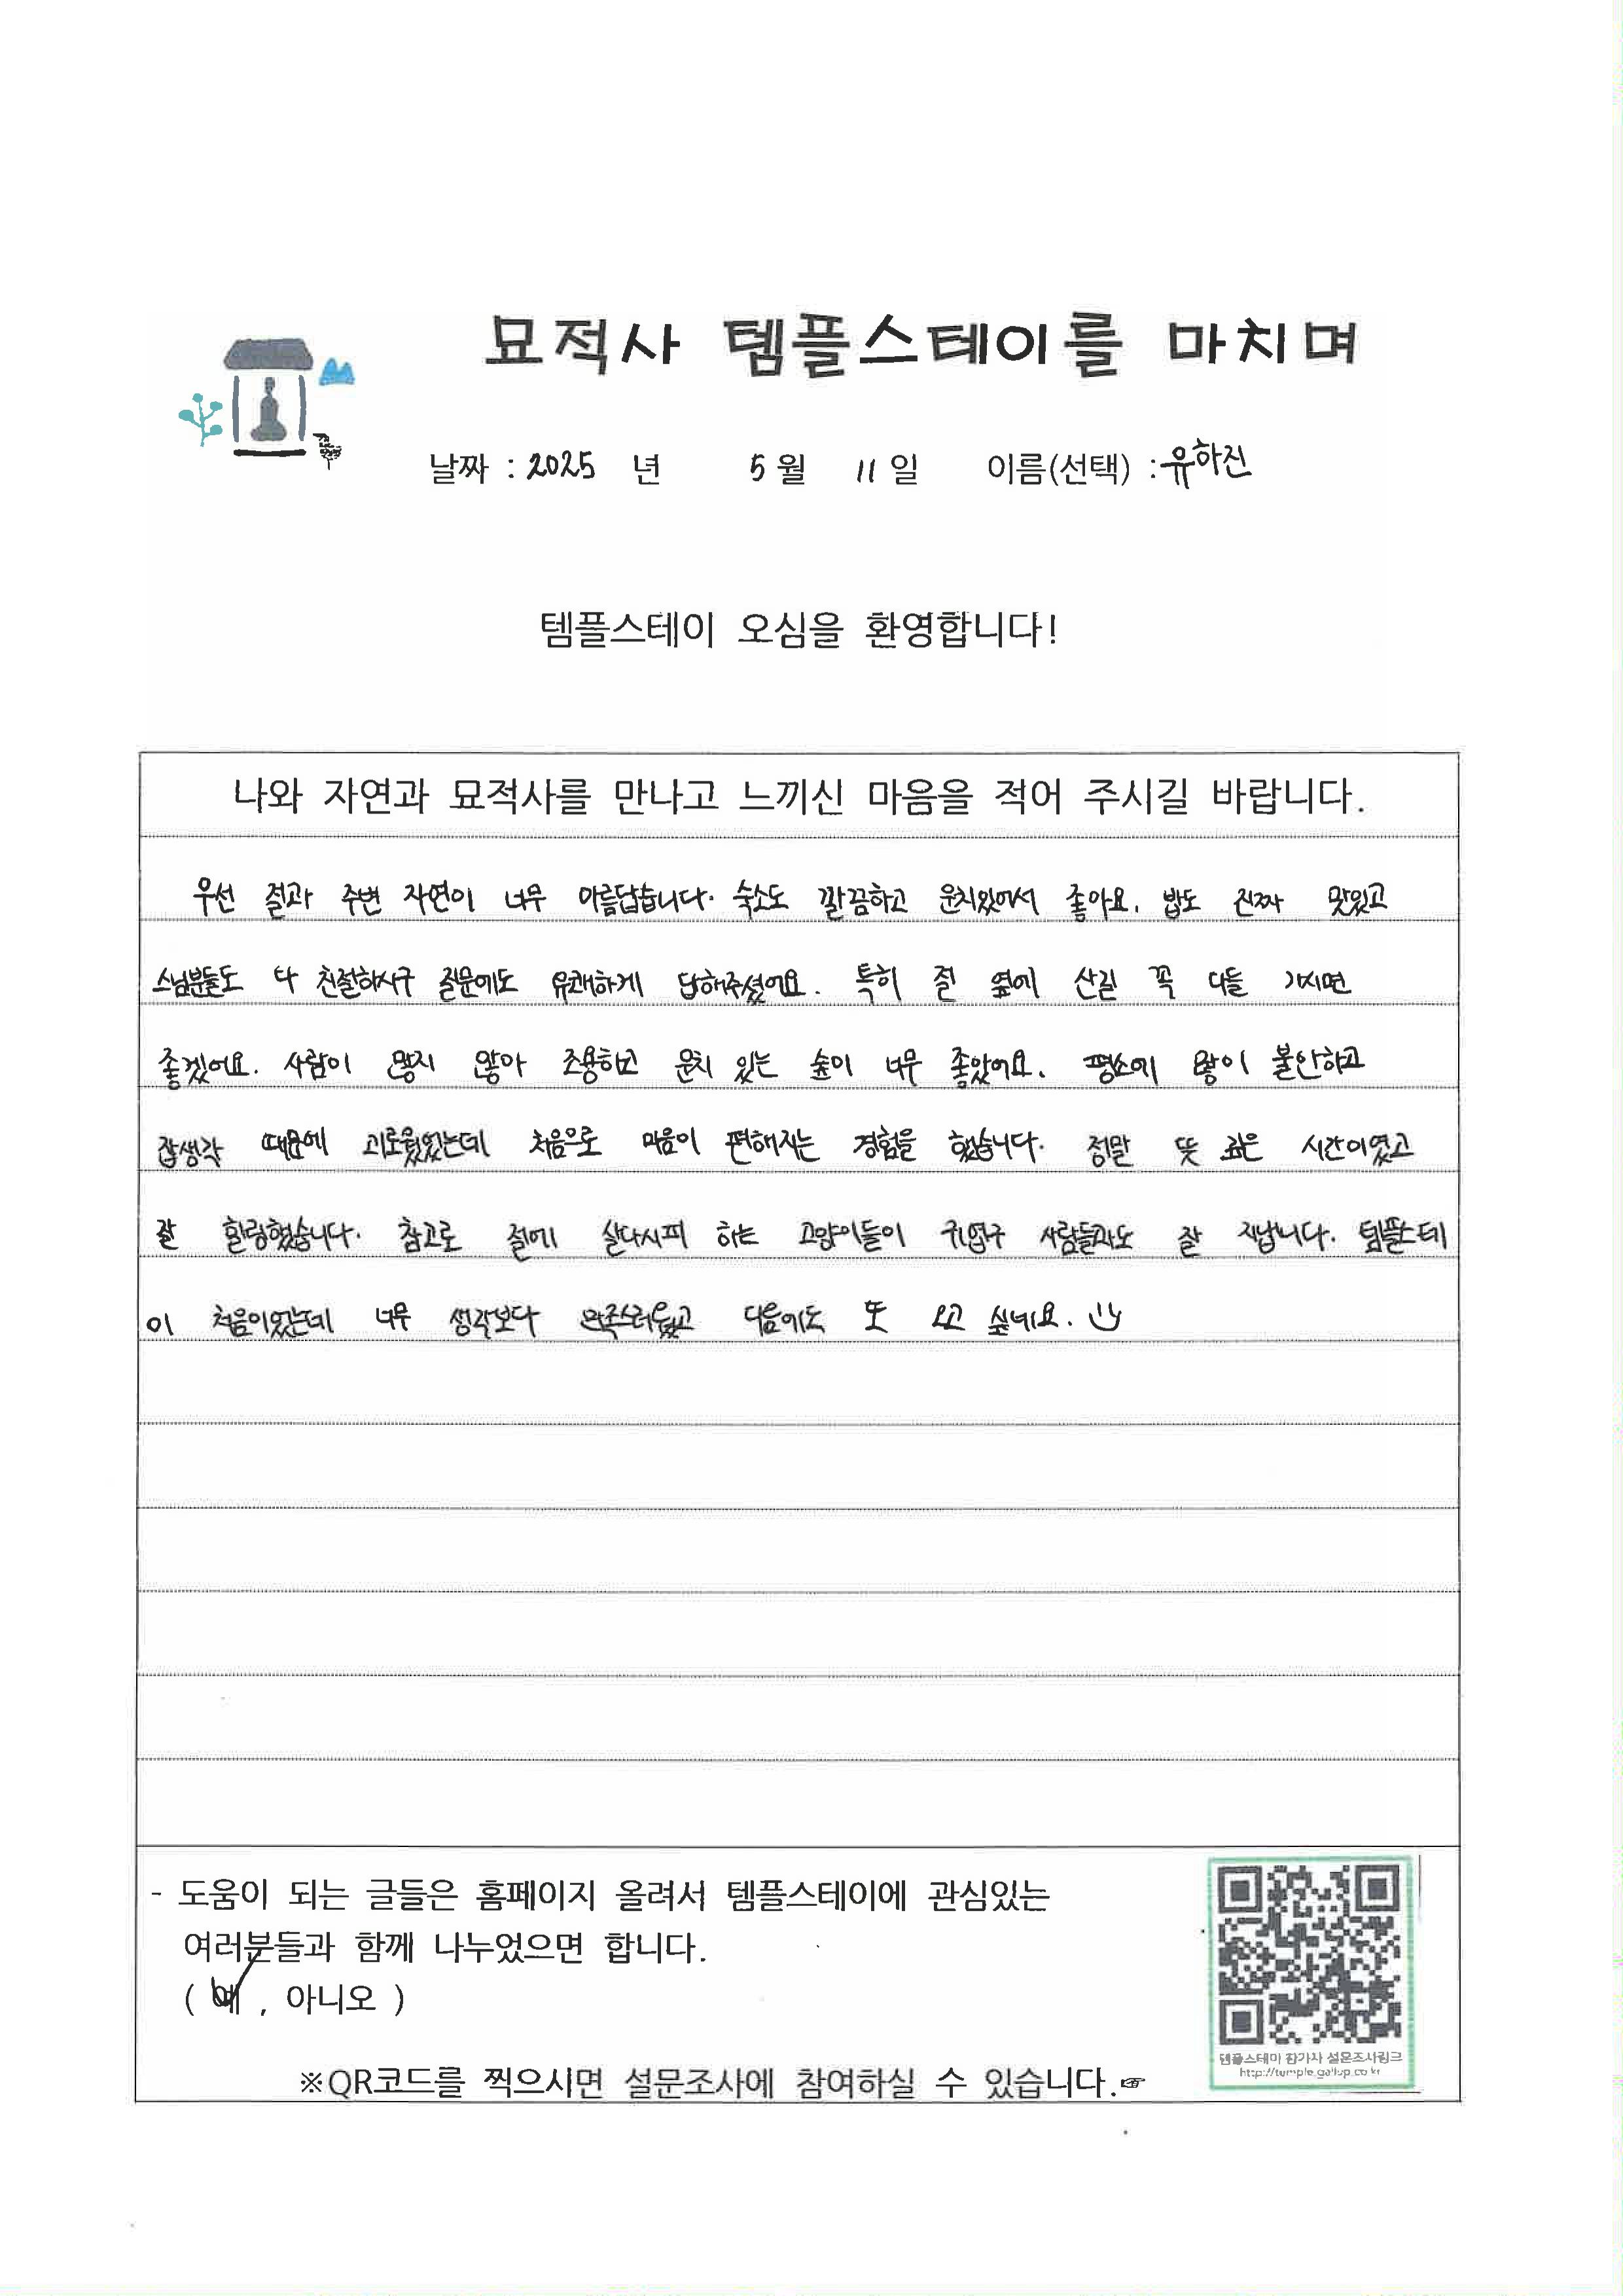 묘적사 템플스테이를 마치며
날짜 : 2025 년 5 월 11 일 이름(선택) : 유하진
템플스테이 오심을 환영합니다!
나와 자연과 묘적사를 만나고 느끼신 마음을 적어 주시길 바랍니다.
우선 절과 주변 자연이 너무 아름답습니다. 숙소도 깔끔하고 운치있어서 좋아요. 밥도 진짜 맛있고
스님분들도 다 친절하시구 질문에도 유쾌하게 답해주셨어요. 특히 절 옆에 산길 꼭 다들 가시면
좋겠어요. 사람이 많지 않아 조용하고 운치 있는 숲이 너무 좋았어요. 평소에 많이 불안하고
잡생각 때문에 괴로웠었는데 처음으로 마음이 편해지는 경험을 했습니다. 정말 뜻 깊은 시간이였고
잘 힐링했습니다. 참고로 절에 살다시피 하는 고양이들이 귀엽구 사람들과도 잘 지냅니다. 템플스테
이 처음이었는데 너무 생각보다 만족스러웠고 다음에도 또 오고 싶네요.
- 도움이 되는 글들은 홈페이지 올려서 템플스테이에 관심있는
여러분들과 함께 나누었으면 합니다.
( 예 , 아니오 )
※QR코드를 찍으시면 설문조사에 참여하실 수 있습니다.☞
템플스테이 참가자 설문조사링크
http://temple.gallup.co.kr